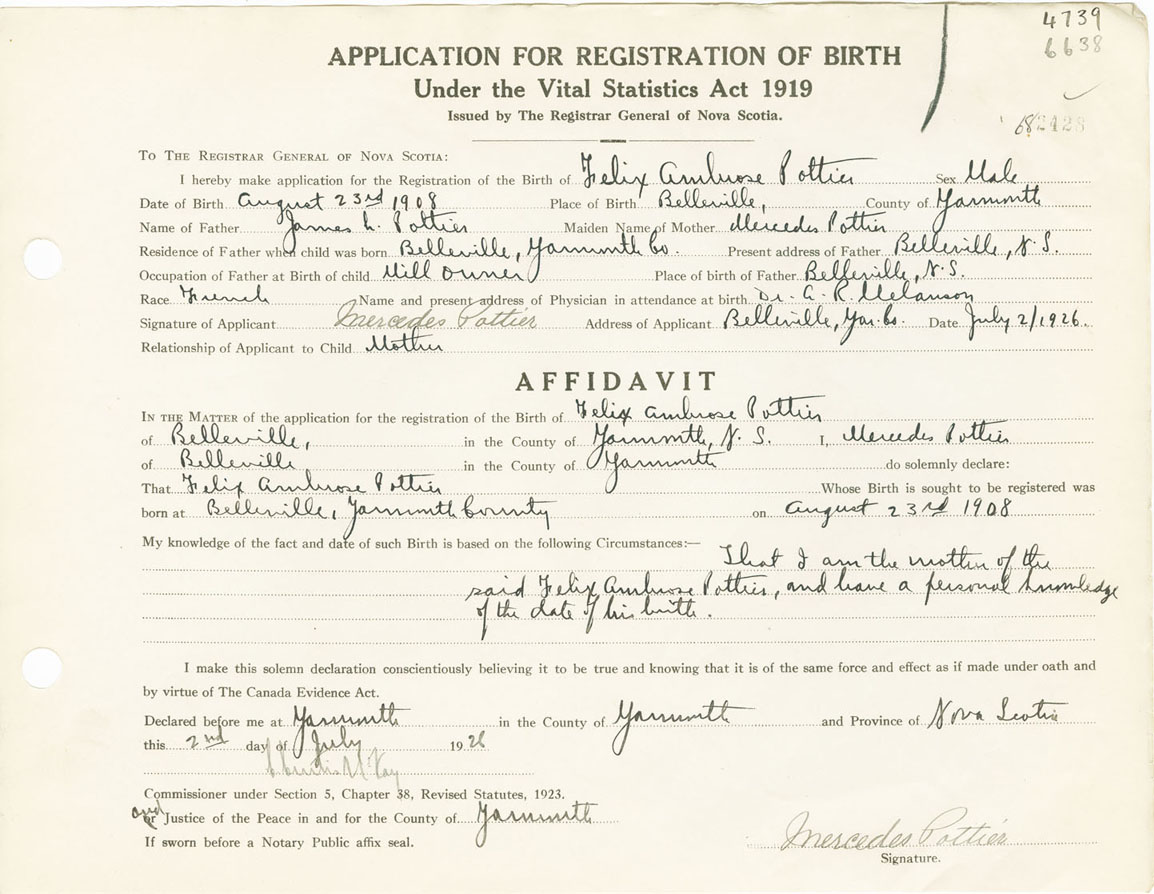 4739
6638
APPLICATION FOR REGISTRATION OF BIRTH
Under the Vital Statistics Act 1919
Issued by The Registrar General of Nova Scotia.
TO THE REGISTRAR GENERAL OF NOVA SCOTIA:
I hereby make application for the Registration of the Birth of Felix Ambrose Pottier Sex Male
Date of Birth August 23rd 1908 Place of Birth Belleville, County of Yarmouth
Name of Father James L. Pottier Maiden Name of Mother Mercedes Pottier
Residence of Father when child was born Belleville, Yarmouth Co. Present address of Father Belleville, N. S.
Occupation of Father at Birth of child Mill Owner Place of birth of Father Belleville, N. S.
Race French Name and present address of Physician in attendance at birth Dr. A. R. Melanson
Signature of Applicant Mercedes Pottier Address of Applicant Belleville, Yar. Co. Date July 2/1926.
Relationship of Applicant to Child Mother
AFFIDAVIT
IN THE MATTER of the application for the registration of the Birth of Felix Ambrose Pottier
of Belleville, in the County of Yarmouth, N. S. I, Mercedes Pottier
of Belleville in the County of Yarmouth do solemnly declare:
That Felix Ambrose Pottier Whose Birth is sought to be registered was
born at Belleville, Yarmouth County on August 23rd 1908
My knowledge of the fact and date of such Birth is based on the following Circumstances:— That I am the mother of the
said Felix Ambrose Pottier, and have a personal knowledge
of the date of his birth.
I make this solemn declaration conscientiously believing it to be true and knowing that it is of the same force and effect as if made under oath and
by virtue of The Canada Evidence Act.
Declared before me at Yarmouth in the County of Yarmouth and Province of Nova Scotia
this 2nd day of July 1926
Commissioner under Section 5, Chapter 38, Revised Statutes, 1923.
and Justice of the Peace in and for the County of Yarmouth
If sworn before a Notary Public affix seal.
Mercedes Pottier
Signature.